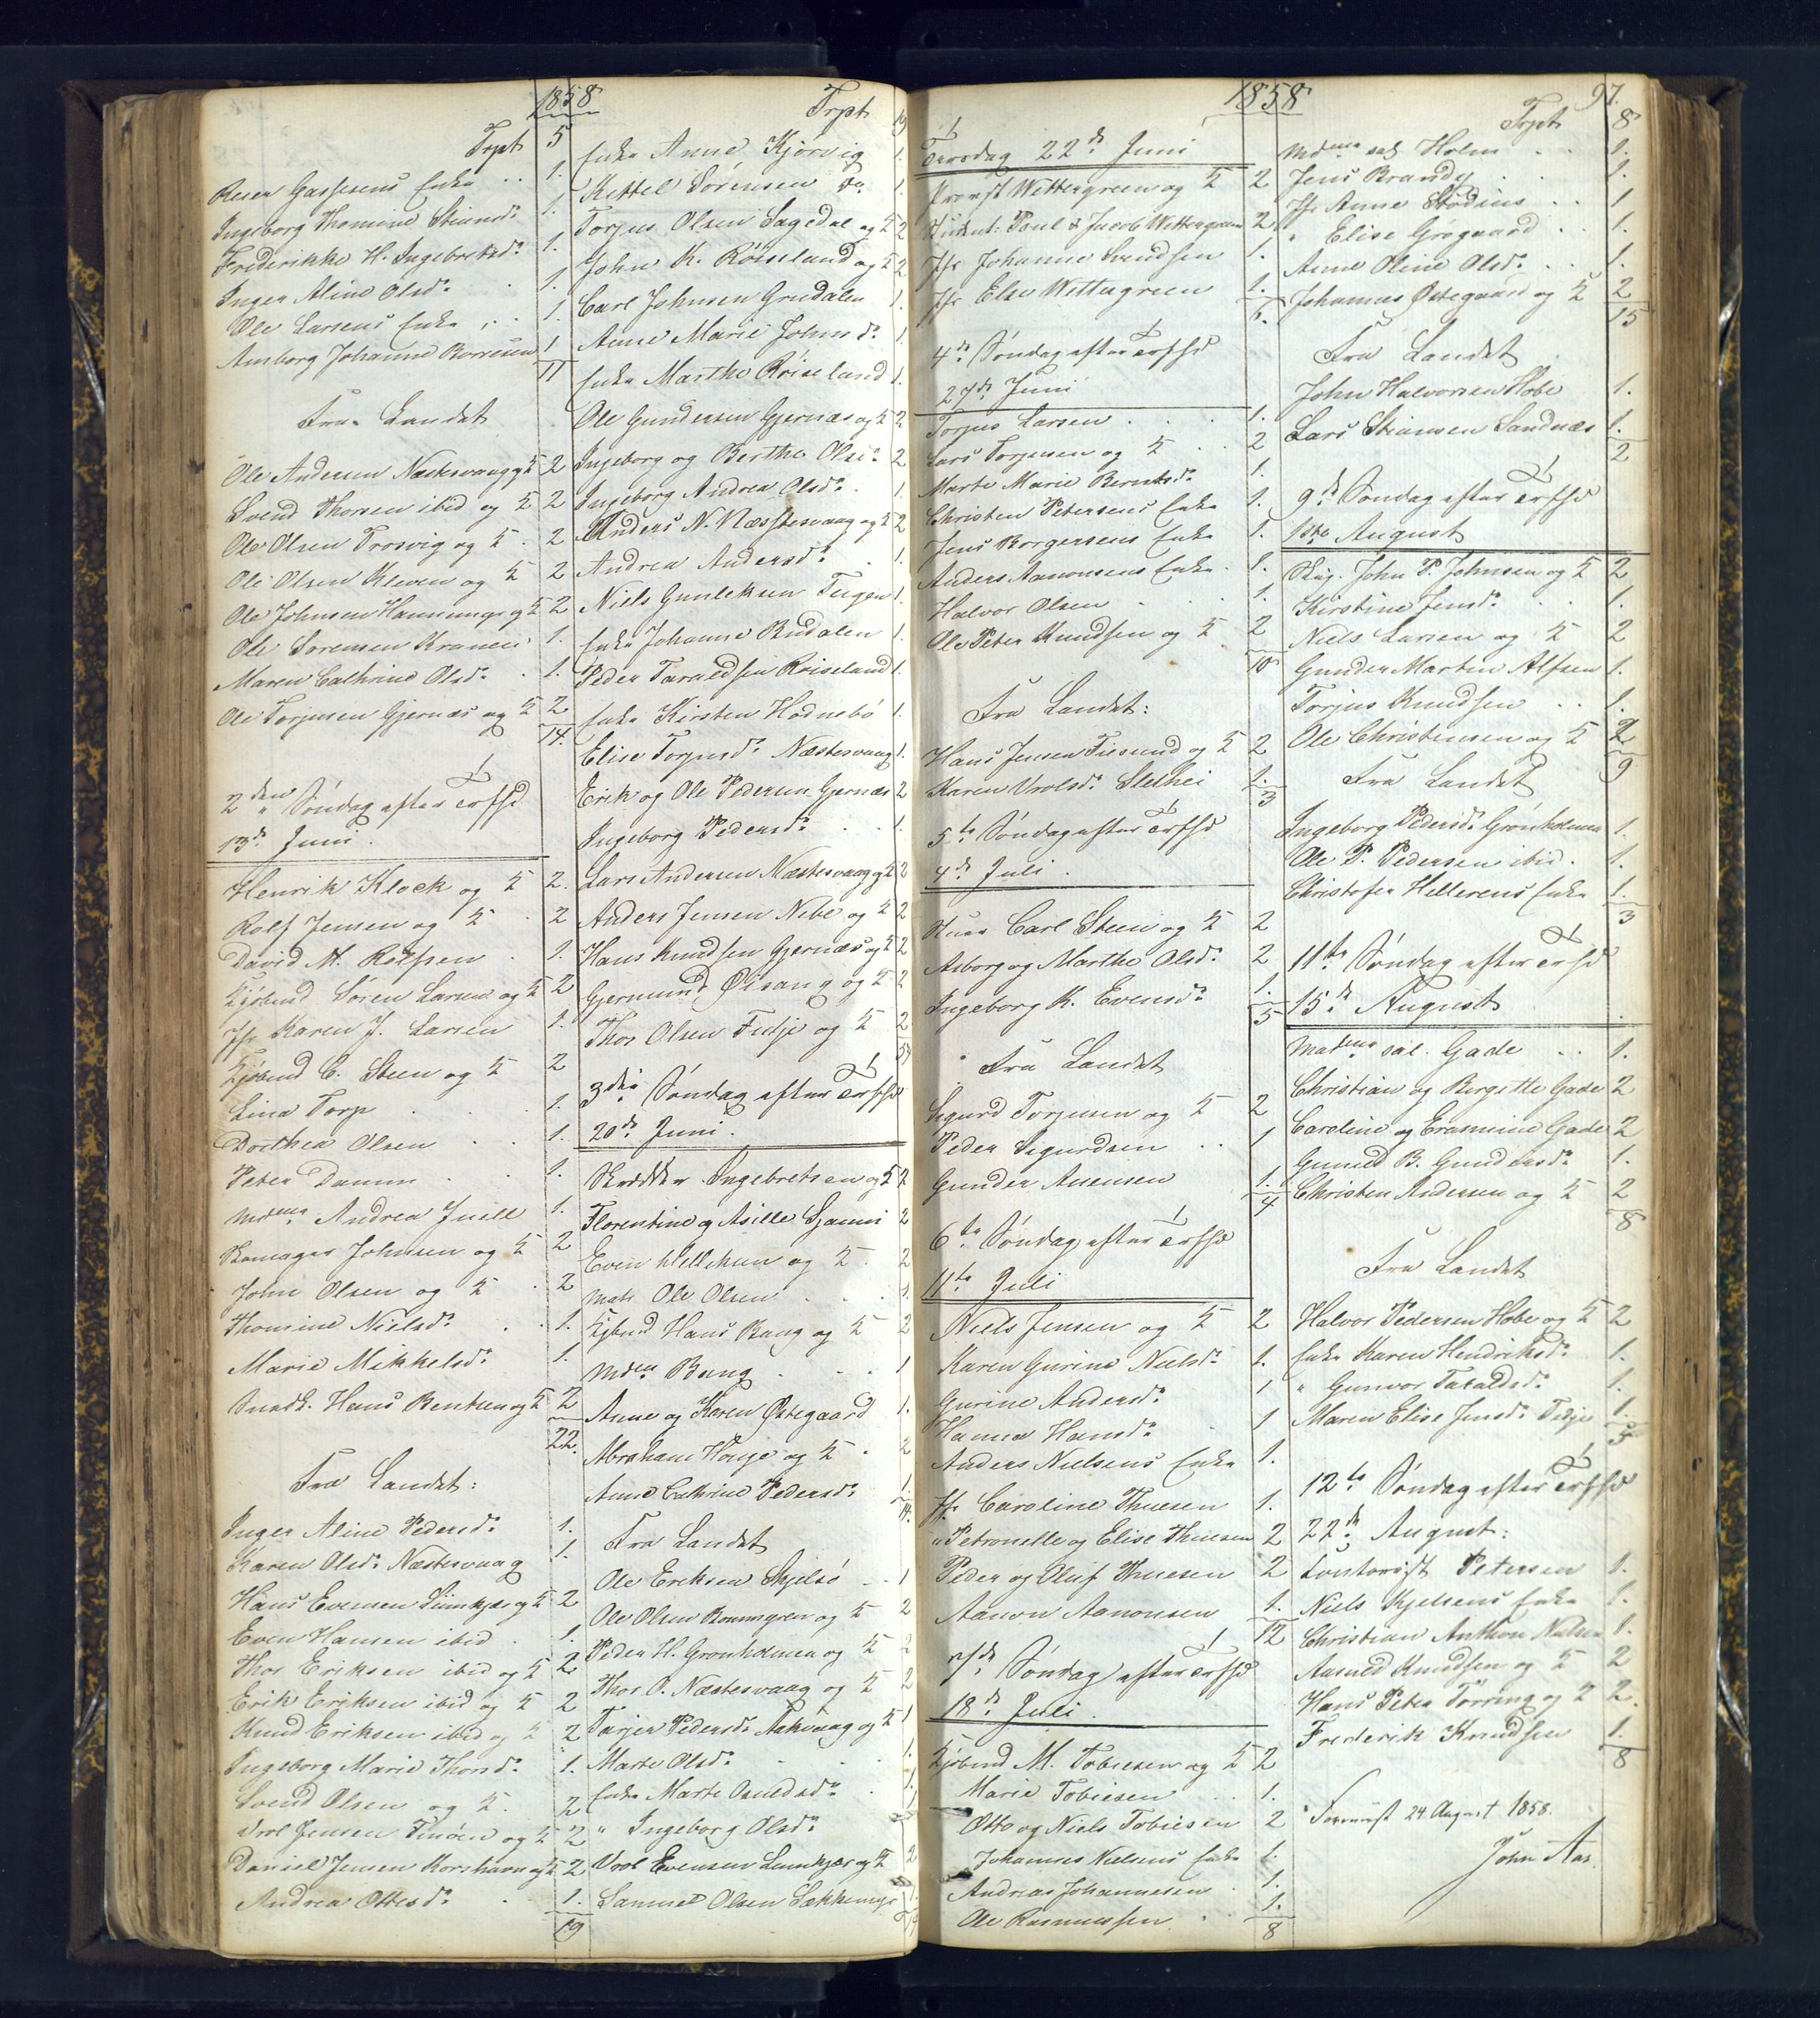 1858
Trpt 5
Gassesens Enke . . 1.
Ingeborg Thomine 1.
Frederikke H. Ingebretsd: 1.
Inger Aline Olsd: 1.
Ole Larsens Enke . . 1.
Johanne 1
11
Fra Landet
Ole Andersen Næstesvaag og K 2
Svend Thorsen ibid og K 2
Ole Olsen Trosvig og K . 2
Ole Olsen Kleven og K 2
Ole Johnsen og K 2
Ole Sørensen 1.
Maren Cathrine Olsd: . 1.
Ole Torjusen Gjernæs og K 2
14.
2den Søndag efter Trefhd
13de Juni.
Henrik Klock og K 2.
Rolf Jensen og K 2
David M. Rolfsen . 1.
Kjøbmd Søren Larsen og K 2
Jfr Karen J. Larsen 1.
Kjøbmd C. Steen og K 2
Lina Torp . . 1.
Dorthea Olsen . . 1.
Peter Damm . . 1.
Mdme Andrea Juell 1.
Skomager Johnsen og K 2
John Olsen og K . 2
Thomine Nielsd: . 1.
Marie Mikkelsd: 1.
Snedk. Hans Bentsen og K 2
22.
Fra Landet:
Inger Aline Pedersd: 1.
Karen Olsd: Næstesvaag 1.
Hans Evensen og K 2
Even Hansen ibid . 1.
Thor Eriksen ibid og K 2
Erik Eriksen ibid og K 2
Knud Eriksen ibid og K 2
Ingeborg Marie Thorsd: 1.
Svend Olsen og K . 2
Vrol Jensen og K 2
Daniel Jensen Korshavn og K 2
Andrea Ottesd: . 1.
19
Trpt 19
Enke Anne Kjørvig 1.
Kittel Sørensen do 1.
Torjus Olsen Sagedal og K 2
John K. Röiseland og K 2
Carl Johnsen Grudalen 1.
Anne Marie Johnsd: 1.
Enke Marthe Röiseland 1.
Ole Gundersen Gjernæs og K 2
Ingeborg og Berthe Olsd: 2
Ingeborg Andrea Olsd: . 1.
Anders N. Næstesvaag og K 2
Andrea Andersd: . 1.
Niels Gunleksen 1.
Enke Johanne Rudalen 1.
Peder Taraldsen Röiseland 1.
Enke Kirsten Hødnebö 1.
Elise Torjusd: Næstesvaag 1.
Erik og Ole Pedersen Gjernæs 2
Ingeborg Pedersd: . . 1.
Lars Andersen Næstesvaag og K 2
Anders Jensen Nebe og K 2
Hans Knudsen Gjernæs og K 2
Gjermund Øisang og K 2
Thor Olsen og K 2
3die Søndag efter Trefhd
20de Juni.
Skrædder Ingebretsen og K 2
Florentine og 2
Even og K . 2
Matr Ole Olsen . . 1.
Kjbmd Hans Bang og K 2
Mdme Bang . . . 1
Anne og Karen Østegaard 1.
Abraham og K . 2
Anne Cathrine Pedersd: 1.
14.
Fra Landet
Ole Eriksen Skjelsö . . 1
Ole Olsen og K 2
Peder H. Grønholmen og K 2
Thor O. Næstesvaag og K 2
Tarjer Pedersd: og K 1
Marte Olsd: . . 1.
Enke Marte . 1.
" Ingeborg Olsd:
Vrol Evensen og K 2
Samuel Olsen
1858 97.
Tirsdag 22de Juni
Provst Wettergreen og K 2
Student: Poul & Jacob Wettergreen 2
Jfr Johanne 1.
Jfr Else Wettergreen 1.
6.
4de Søndag efter Trefhd
27de Juni
Torjus Larsen . . . 1.
Lars Torjusen og K . 2
Marte Marie Berntsd: 1.
Christen Petersens Enke 1.
Jens Borgersens Enke 1.
Anders Aanonsens Enke . 1.
Halvor Olsen . . . 1.
Ole Peter Knudsen og K 2
10
Fra Landet:
Hans Jensen og K 2
Karen Vrolsd: 1.
3
5te Søndag efter Trefhd
4de Juli.
Carl Steen og K 2
Asborg og Marthe Olsd: 2
Ingeborg K. Evensd: 1.
5
Fra Landet
Sigurd Torjusen og K 2
Peder Sigurdsen . . 1
Gunder Auensen 1.
4
6te Søndag efter Trefhd
11te Juli
Niels Jensen og K 2
Karen Gurine Nielsd: 1.
Gurine Andersd: 1
Hanna Hansd: . 1
Anders Nielsens Enke 1.
Jfr Caroline Thuesen 1.
" Petronelle og Elise Thuesen 2
Peder og Oluf Thuesen 2
Aanon Aanonsen 1.
12
7de Søndag efter Trefhd
18de Juli.
Kjøbmd M. Tobiesen og K 2
Marie Tobiesen . . 1.
Otto og Niels Tobiesen 2
Johannes Nielsens Enke 1.
Andreas Johannesen . 1.
Ole Rasmussen . . 1.
8
Trpt 8
Mdme sal. Holm . . 1.
Jens Brandy . . 1.
Jfr Anne Stodius . . 1
" Elise Grøgaard . . 1.
Anne Oline Olsd: . . 1.
Johannes Østegaard og K 2
15
Fra Landet
John Halvorsen Hobe 1.
Lars Stiansen Sandnæs 1.
2
9de Søndag efter Trefhd
1ste August
John P. Johnsen og K 2
Kirstine Jensd: . . 1.
Niels Larsen og K 2
Gunder Martin Alfsen 1.
Torjus Knudsen . . 1.
Ole Christensen og K 2
9
Fra Landet
Ingeborg Pedersd: Grønholmen 1.
Ole P. Pedersen ibid. 1.
Christofer Hellerens Enke 1.
3
11te Søndag efter Trefhd
15de August
Madme sal. Gade . . 1.
Christian og Birgitte Gade 2
Caroline og Erasmine Gade 2
Gunild B. Gundersd: 1.
Christen Andersen og K 2
8
Fra Landet
Halvor Pedersen Hobe og K 2
Enke Karen Hendriksd: 1.
" Gunvor Taraldsd: 1.
Maren Elise Jensd: 1.
5
12te Søndag efter Trefhd
22de August:
Contorist Petersen 1.
Niels Kjelsens Enke 1.
Christian Anthon 1.
Knudsen og K 2
Hans Peter Törring og K 2.
Frederik Knudsen 1.
8
24 August 1858.
John Aas.